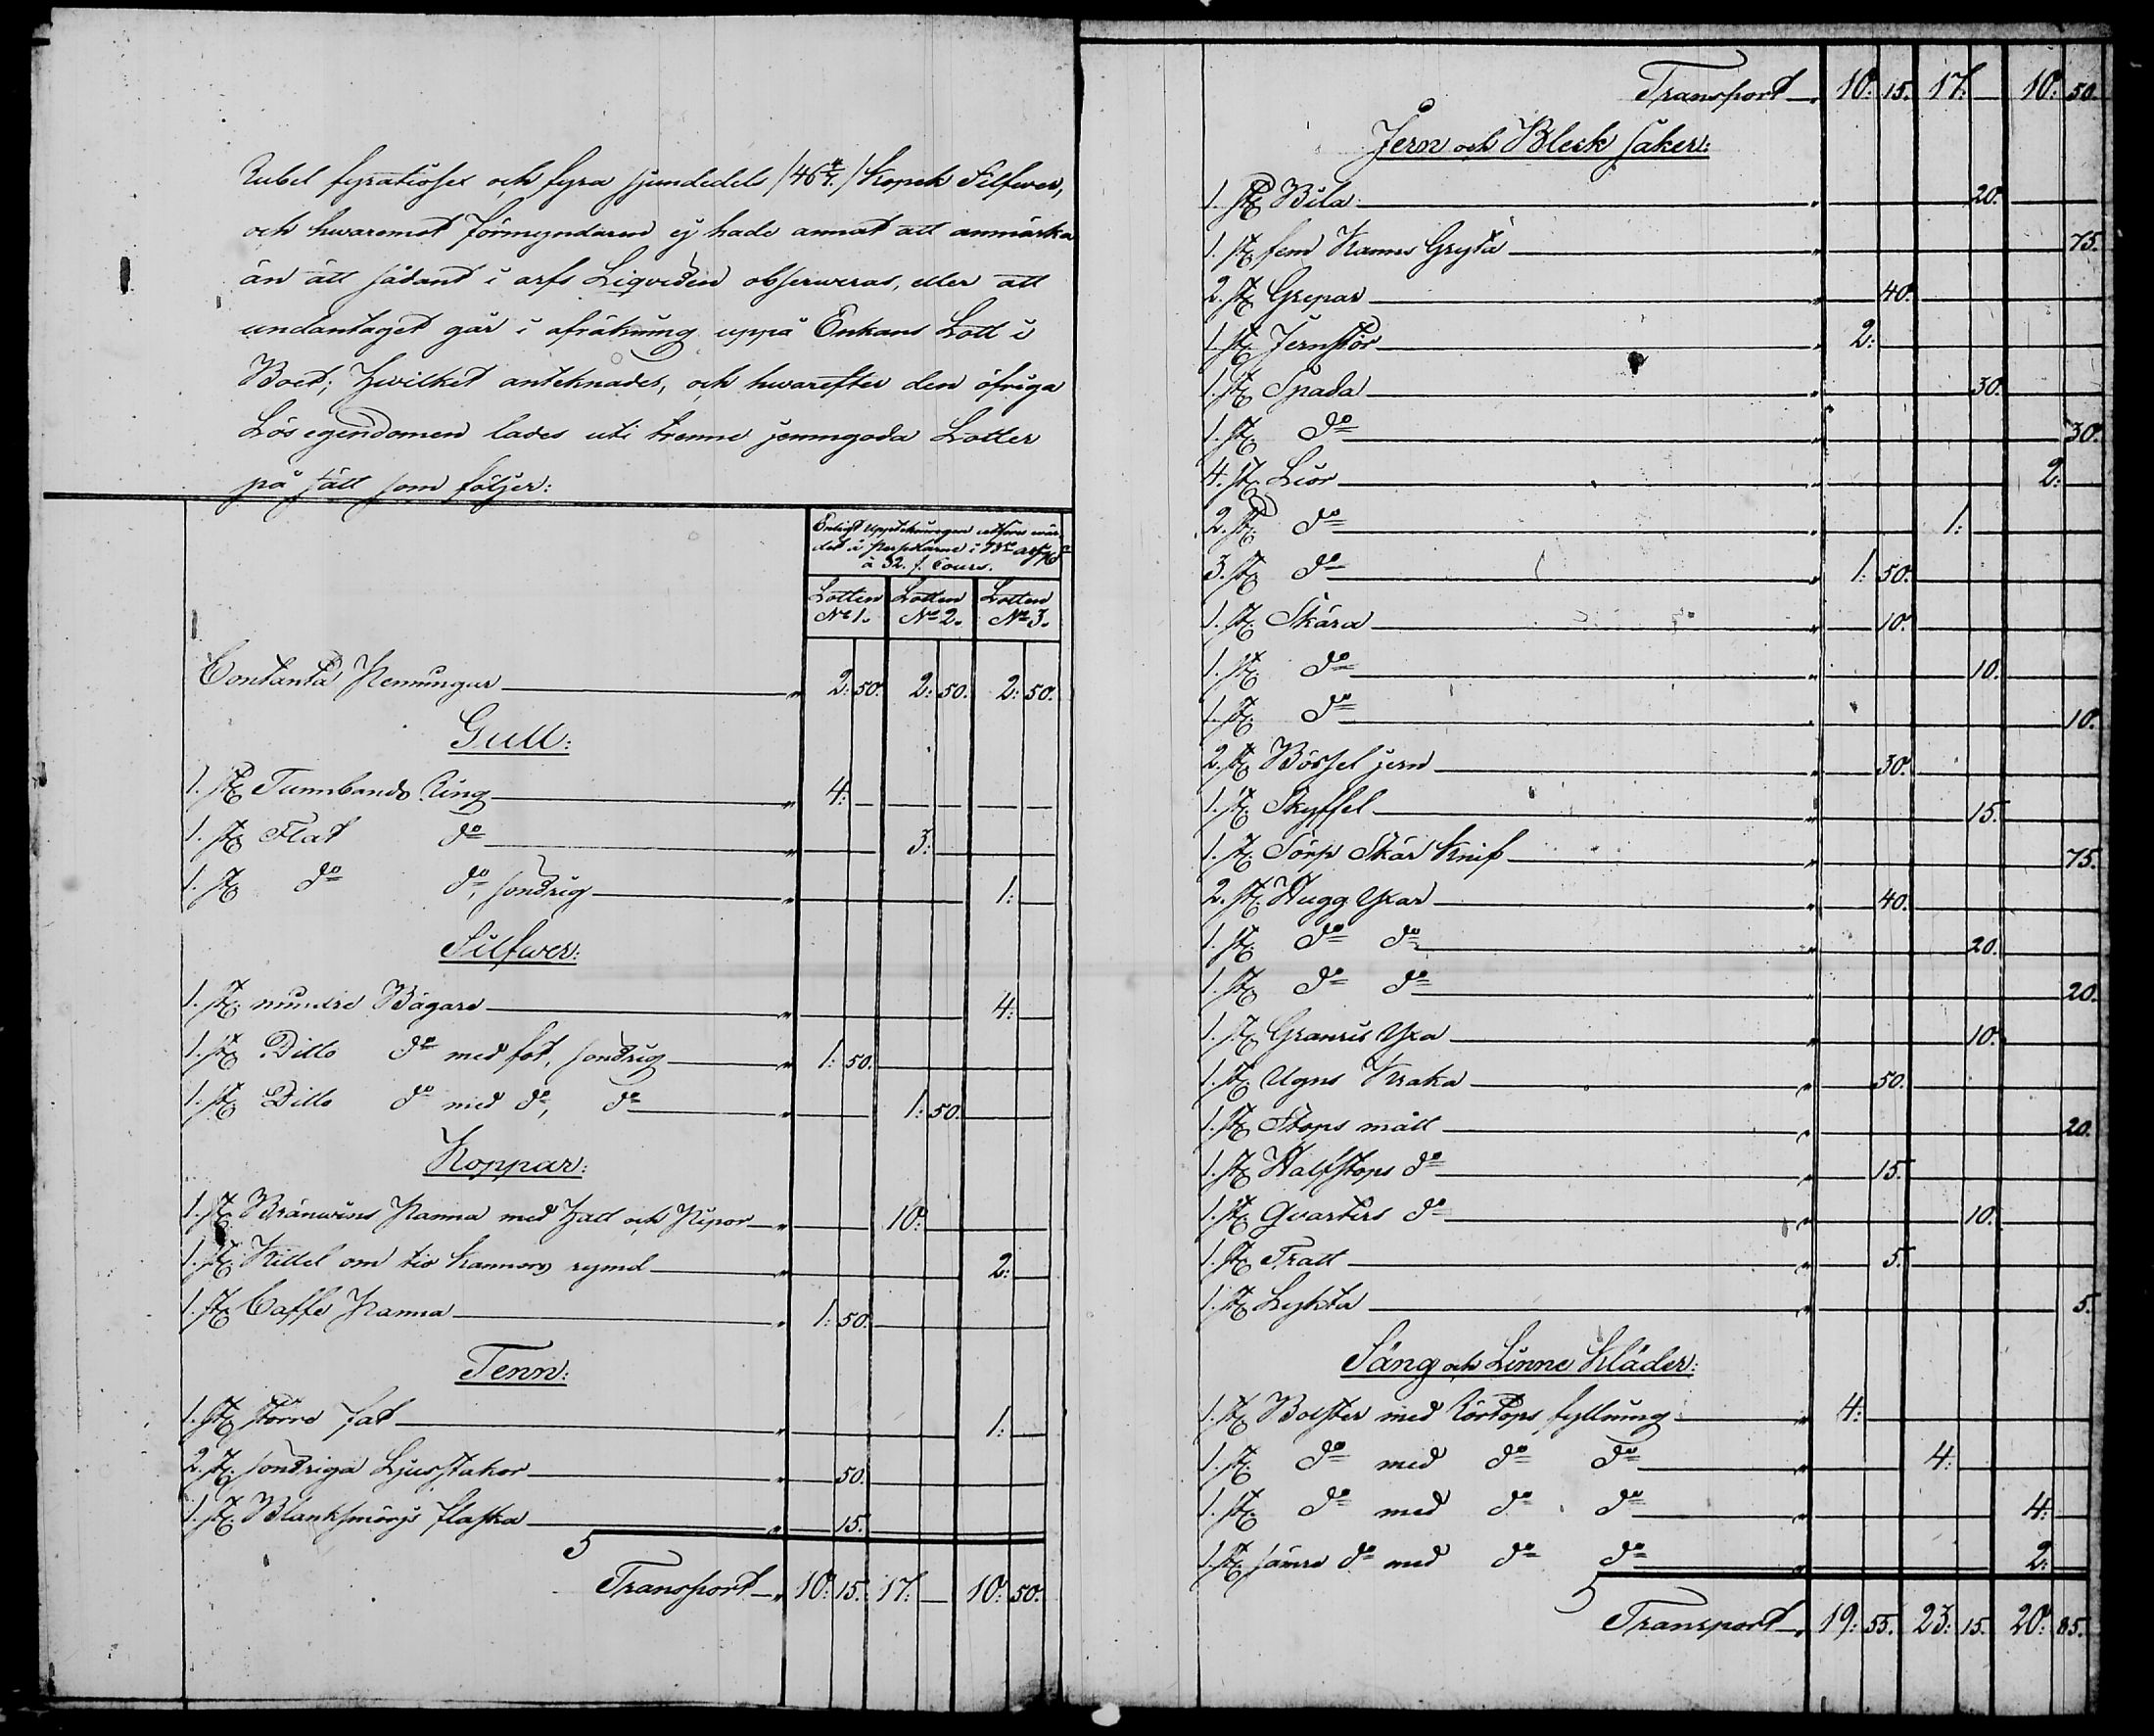 Rubel fyratiosex och fyra sjundedels /46 4/7./ Kopek Silfwer,
och hwaremot förmyndaren ej hade annat att anmärka
än att sådant i arfs Liqviden observeras, eller att
undantaget går i afräkning uppå Enkans Lott i
Boet; Hwilket anteknades, och hwarefter den öfriga
Lösegendomen lades uti trenne jemngoda Lotter
på sätt som följer:
Enligt Uppteckningen utförd wär-
det å persedlarne i
à 32. s. Cours.
Lotten Lotten Lotten
No 1. No 2. No 3.
Contanta Penningar 2: 50. 2: 50. 2: 50.
Gull:
1. st. Tunnbands Ring 4: —
1. st. Flat do 3: —
1. st. do do, söndrig 1: —
Silfwer:
1. st. mindre Bägare 4: —
1. st. Ditto do med fot, söndrig 1: 50.
1. st. Ditto do med do, do 1: 50.
Koppar:
1. st. Bränwins Panna med Hatt och Pipor 10: —
1. st. Kittel om tio kannors rymd 2: —
1. st. Caffe Panna 1: 50.
Tenn:
1. st. större fat 1: —
2. st. söndriga Ljusstakar 50.
1. st. Blanksmörjs flaska 15.
Transport 10: 15. 17: — 10: 50.
Transport 10: 15. 17: — 10: 50.
Jern och Bleck saker:
1. st. Bila 20.
1. st. fem Kannes Gryta 75.
2. st. Grepar 40.
1. st. Jernstör 2: —
1. st. Spada 30.
1. st. do 30.
4. st. Liar 2: —
2. st. do 1: —
3. st. do 1: 50.
1. st. Skära 10.
1. st. do 10.
1. st. do 10.
2. st. Bösseljern 30.
1. st. Skyffel 15.
1. st. Sörp Skär Knif 75.
2. st. Hugg Yxar 40.
1. st. do do 20.
1. st. do do 20.
1. st. Granris Yxa 10.
1. st. Ugns Kraka 50.
1. st. Stops mått 20.
1. st. Halfstops do 15.
1. st. Qvarters do 10.
1. st. Tratt 5.
1. st. Lykta 5.
Säng och Linne Kläder:
1. st. Bolster med Rörtops fyllning 4: —
1. st. do med do do 4: —
1. st. do med do do 4: —
1. st. sämre do med do do 2: —
Transport 19: 55. 23: 15. 20: 85.